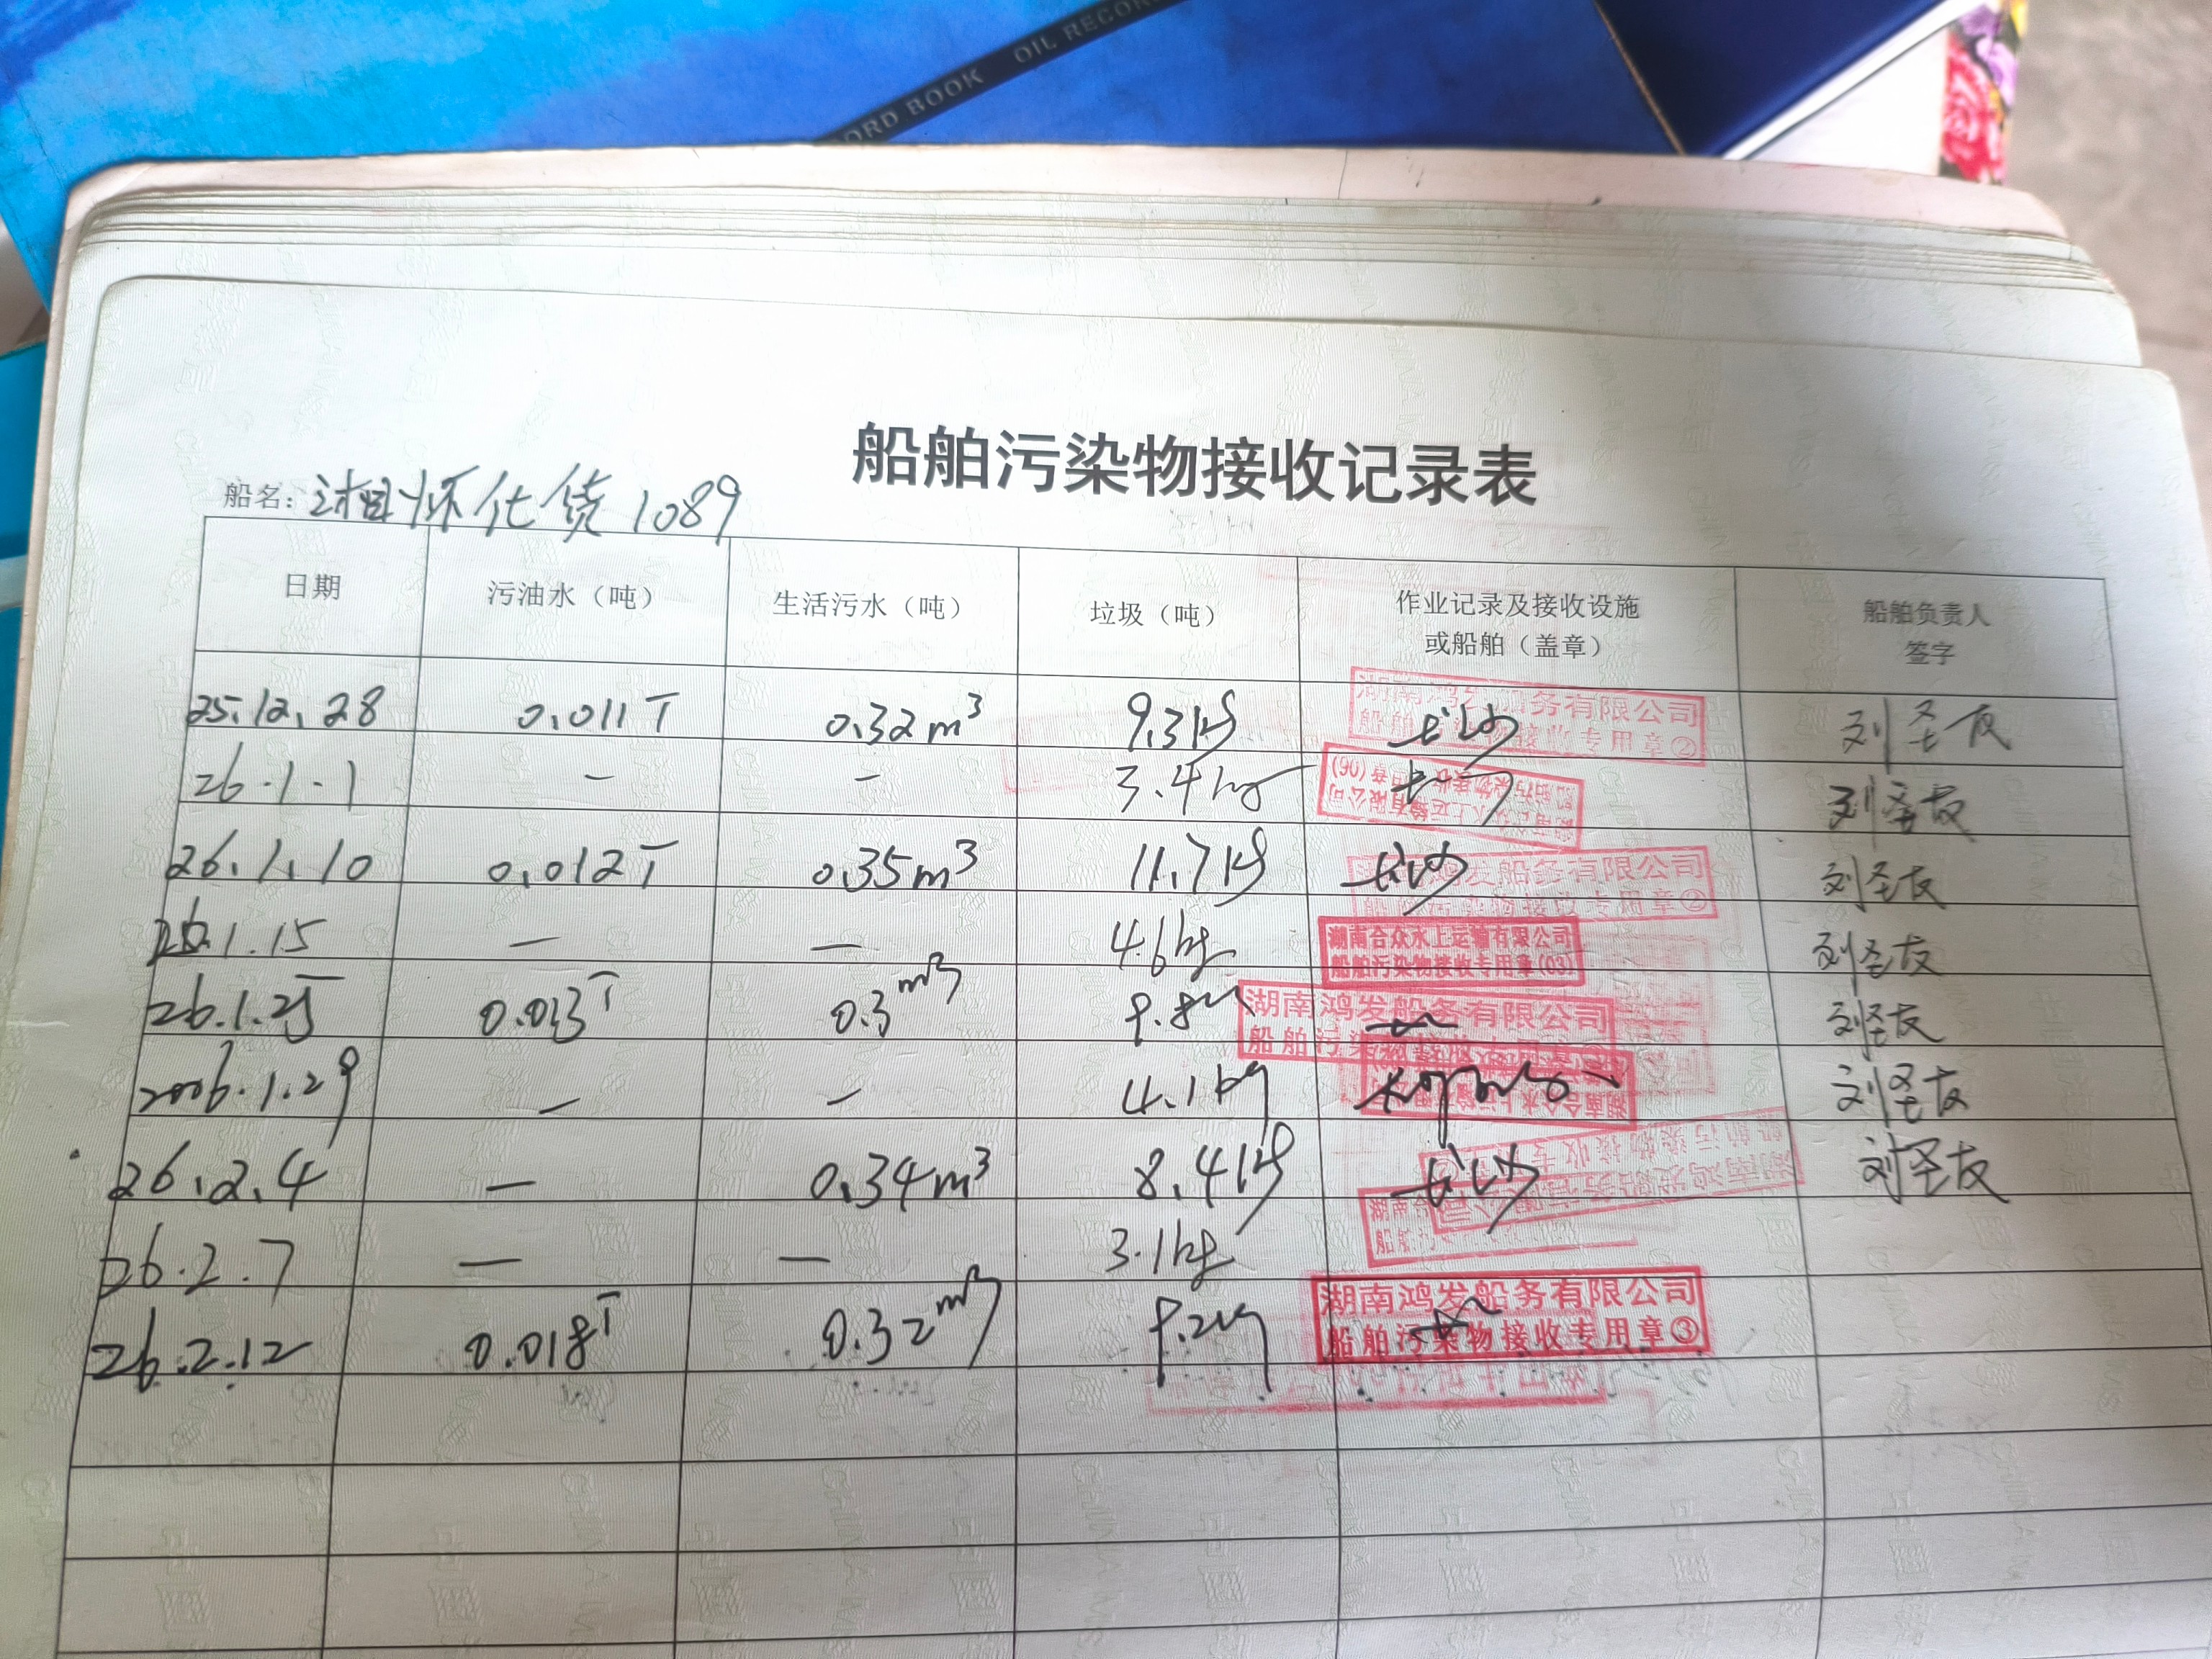 ORD BOOK OIL RECOR
船舶污染物接收记录表
船名: 湘怀化货1089
日期 污油水（吨） 生活污水（吨） 垃圾（吨） 作业记录及接收设施或船舶（盖章） 船舶负责人签字
25.12.28 0.011T 0.32m³ 9.3kg 长沙 湖南鸿发船务有限公司 船舶污染物接收专用章② 刘圣友
26.1.1 — — 3.4kg 刘圣友
26.1.10 0.012T 0.35m³ 11.7kg 长沙 湖南鸿发船务有限公司 船舶污染物接收专用章② 刘圣友
26.1.15 — — 4.6kg 湖南合众水上运输有限公司 船舶污染物接收专用章(03) 刘圣友
26.1.25 0.013T 0.3m³ 9.8kg 湖南鸿发船务有限公司 刘圣友
2006.1.29 — — 4.1kg 刘圣友
26.2.4 — 0.34m³ 8.4kg 长沙 刘圣友
26.2.7 — — 3.1kg
26.2.12 0.018T 0.32m³ 9.2kg 湖南鸿发船务有限公司 船舶污染物接收专用章③